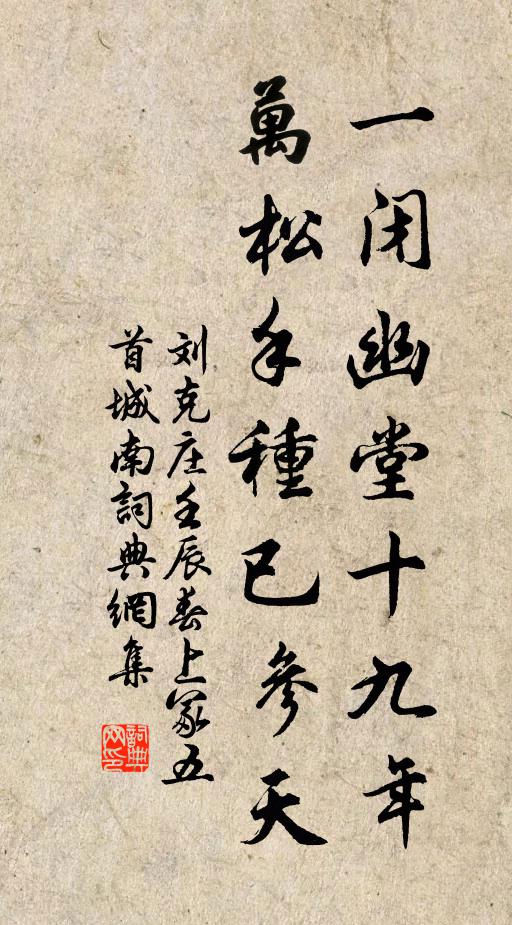 一闭幽堂十九年
萬松手種已參天
刘克庄壬辰春上冢五
首城南詞典網集
詞典网印